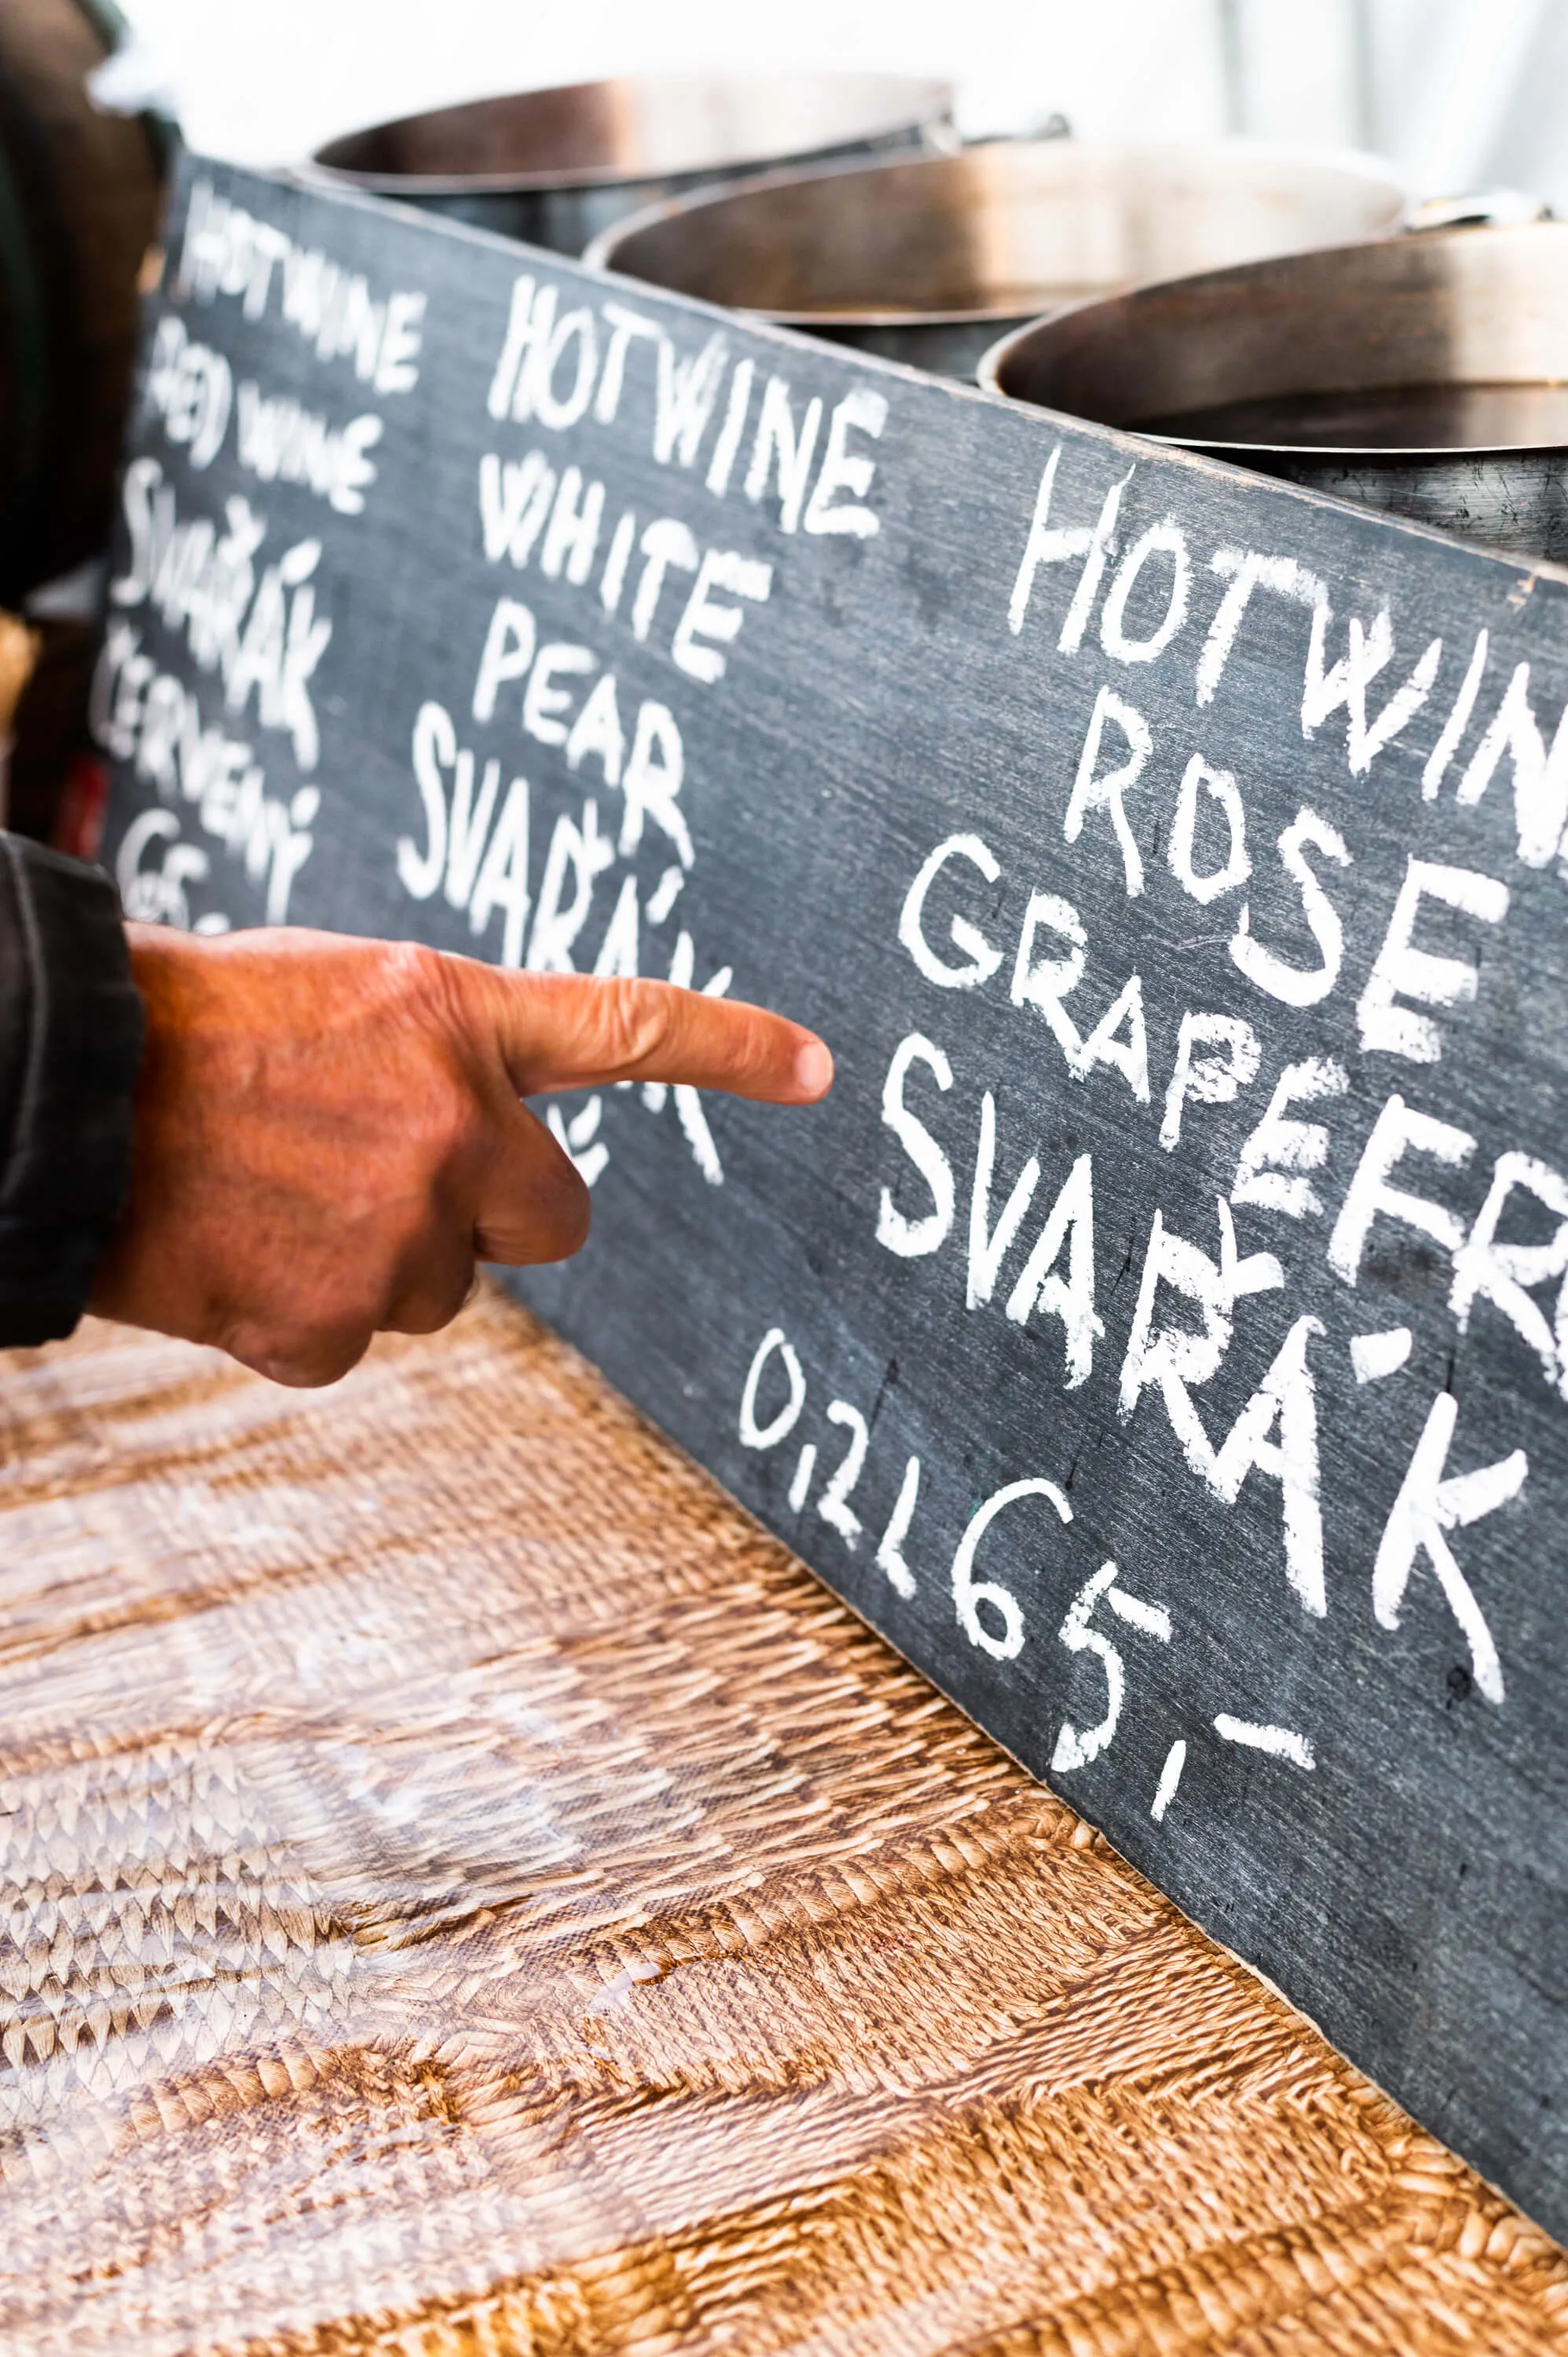 HOTWINE
RED WINE
SVAŘÁK
ČERVENÝ
65
HOTWINE
WHITE
PEAR
SVAŘÁK
HOTWIN
ROSE
GRAPEFR
SVAŘÁK
0,2L 65,-